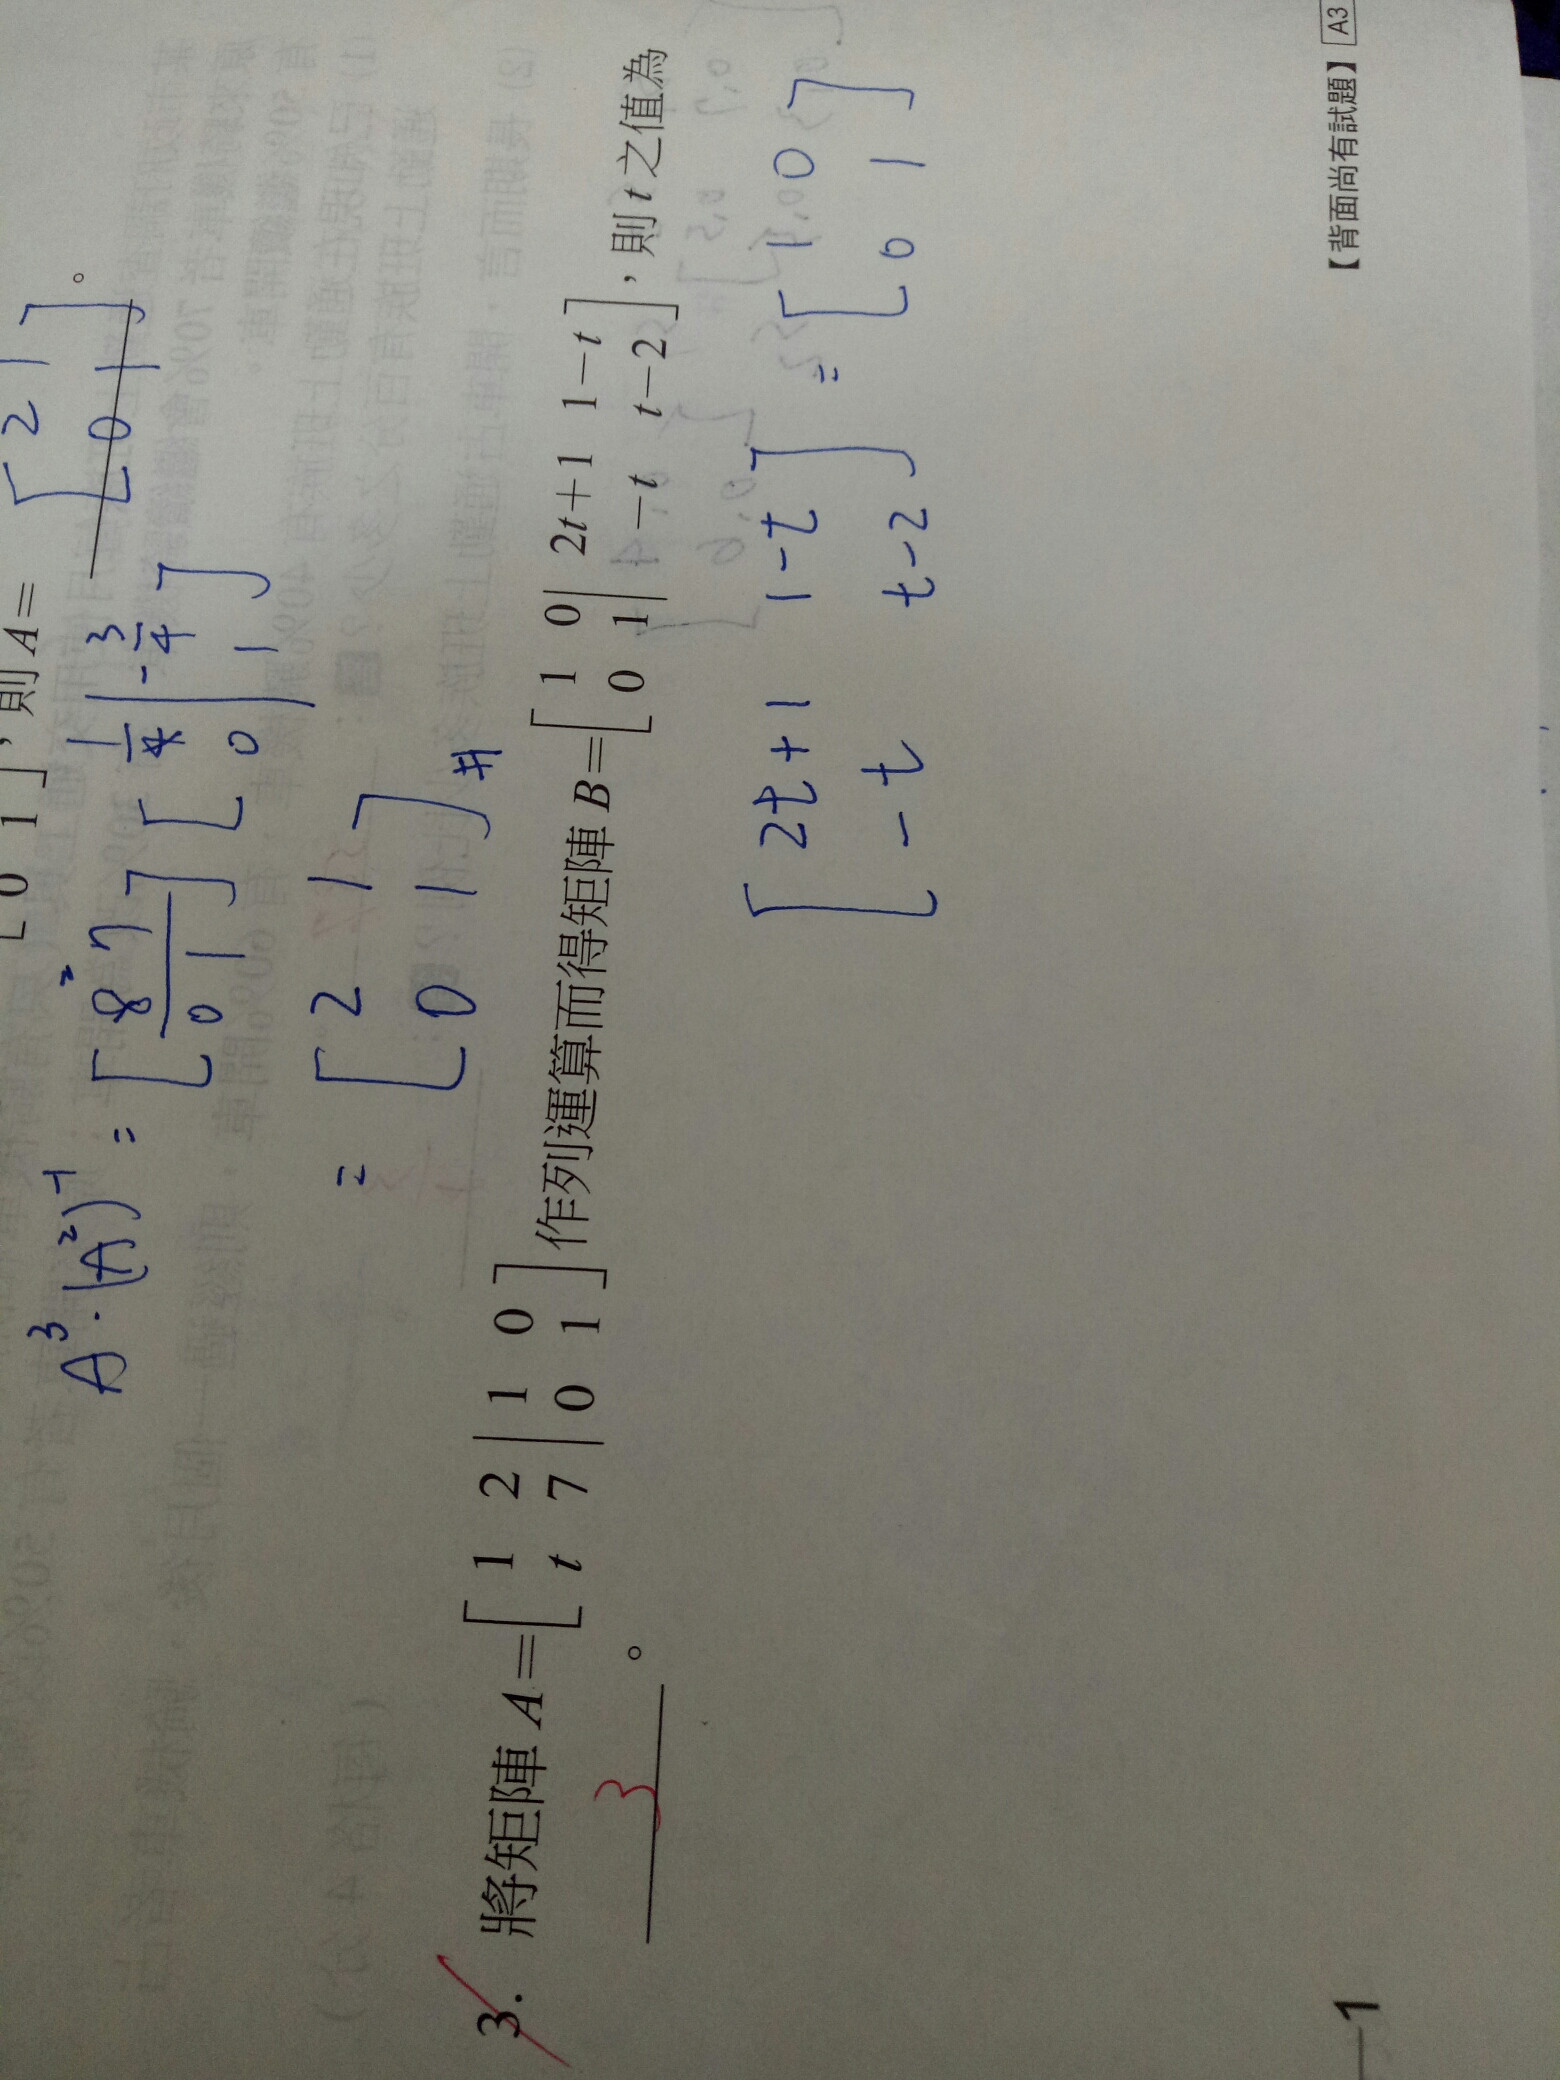 [2 1
0 1]。
0 1], 則A=
A³·(A²)⁻¹ = [8 7
0 1] [1/4 | -3/4
0 1]
= [2 1
0 1] #
3. 將矩陣 A=[1 2 | 1 0
t 7 | 0 1] 作列運算而得矩陣 B=[1 0 | 2t+1 1-t
0 1 | -t t-2],則 t 之值為
3 。
[2t+1 1-t
-t t-2] = [1 0
0 1]
1
【背面尚有試題】 A3